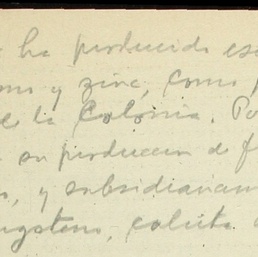 ha producido es
y zinc, como
de la Colonia. Po
su produccion de f
, y subsidiariam
ngsteno, cobre